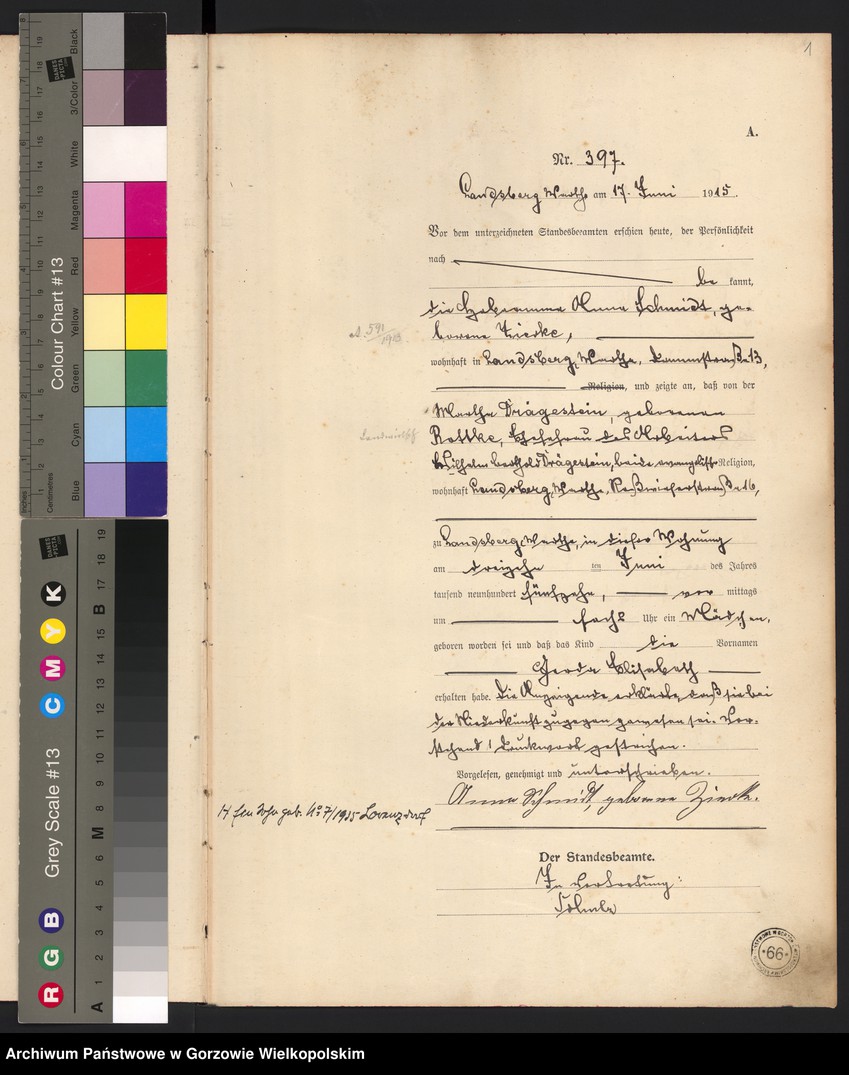 1
A.
Nr. 397.
Landsberg Warthe am 17. Juni 1915.
Vor dem unterzeichneten Standesbeamten erschien heute, der Persönlichkeit
nach
be kannt,
die Hebamme Anna Schmidt, ge-
borene Zierke,
A. 591/1913
wohnhaft in Landsberg, Warthe, Dammstraße 13,
Religion, und zeigte an, daß von der
Martha Drägestein, geborenen
Rottke, Ehefrau des Arbeiters
Landwirtsch
Wilhelm Berthold Drägestein, beide evangelischer Religion,
wohnhaft Landsberg, Warthe, Roßwieserstraße 16,
zu Landsberg, Warthe, in dieser Wohnung
am dreizehn ten Juni des Jahres
tausend neunhundert fünfzehn, vor mittags
um sechs Uhr ein Mädchen,
geboren worden sei und daß das Kind die Vornamen
Gerda Elisabeth
erhalten habe. Die Anzeigende erklärte, daß sie bei
der Niederkunft zugegen gewesen sei. Vor-
stehend 1 Druckwort gestrichen.
Vorgelesen, genehmigt und unterschrieben.
Anna Schmidt, geborene Zierke.
geb. No 7/1935 Lorenzdorf
Der Standesbeamte.
In Vertretung:
66
Colour Chart #13
Black
3/Color
White
Magenta
Red
Yellow
Green
Cyan
Blue
Inches
Centimetres
DANES PICTA .com
Grey Scale #13
R G B C M Y K
A 1 2 3 4 5 6 M 8 9 10 11 12 13 14 15 B 17 18 19
Archiwum Państwowe w Gorzowie Wielkopolskim